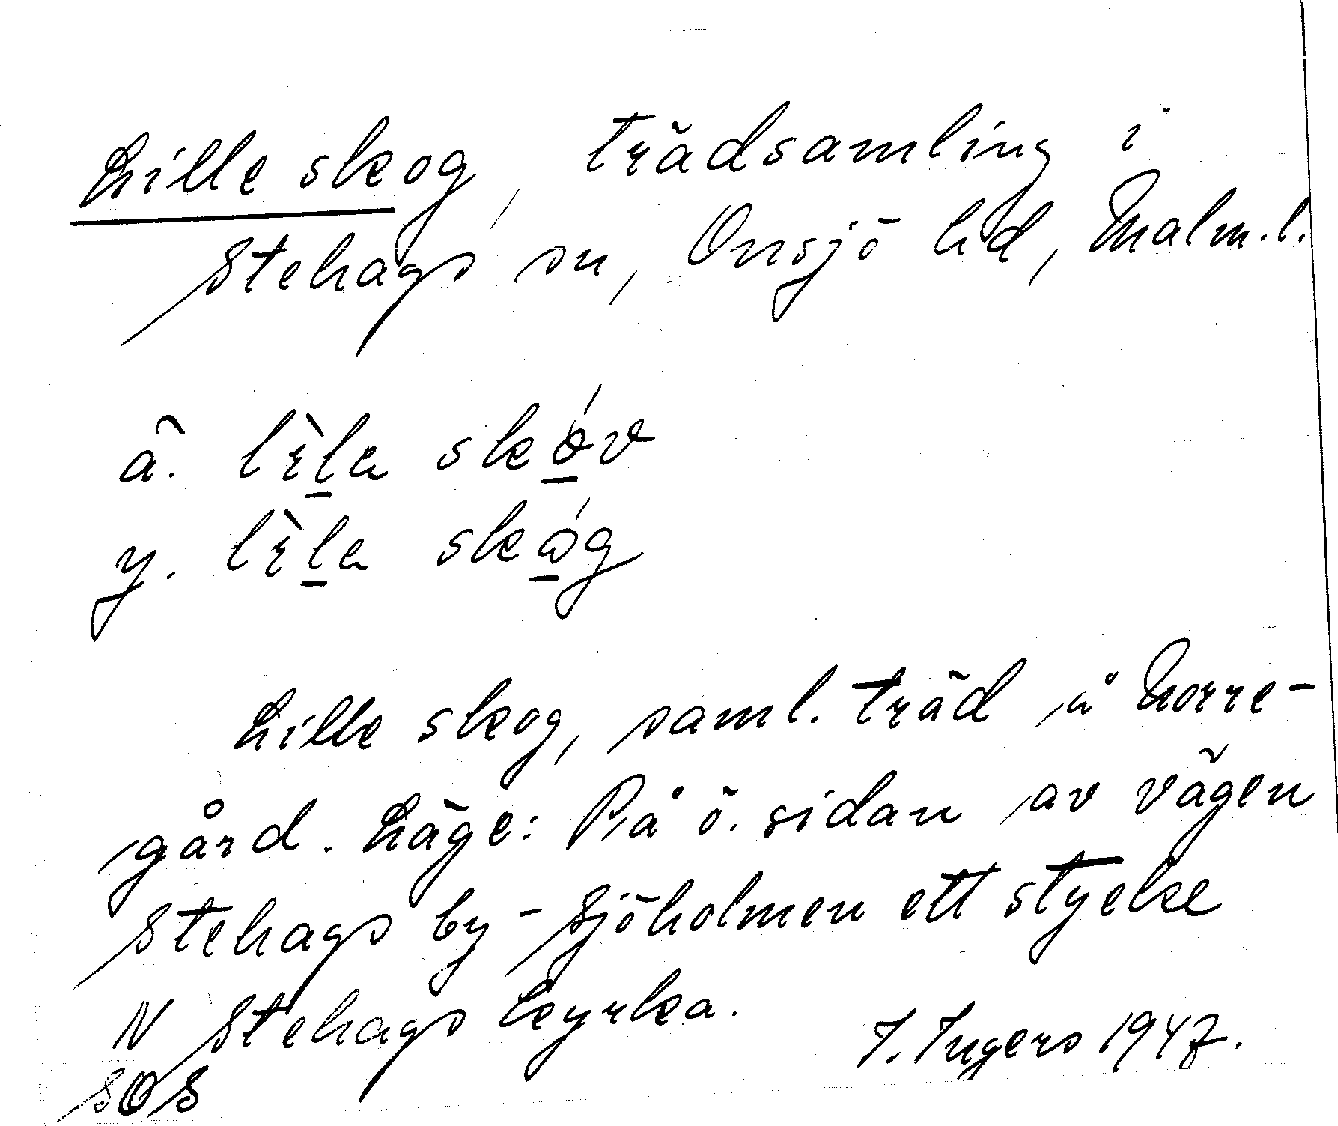 Lille skog, trädsamling i
Stehags sn, Onsjö hd, Malm.l.
ä. lìla skóv
y. lìla skóg
Lille skog, saml. träd å Norre-
gård. Läge: På ö. sidan av vägen
Stehags by - Sjöholmen ett stycke
N Stehags kyrka.
I. Ingers 1947.
SOS